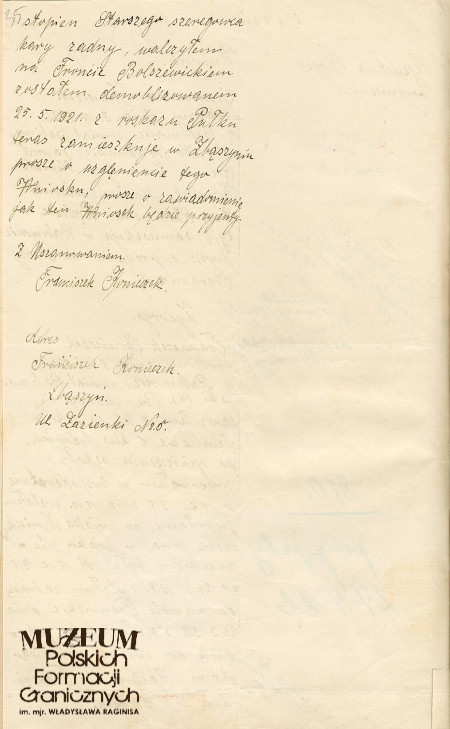 stopień Starszego szeregowca
kary żadny, walczyłem
na Froncie Bolszewickiem
zostałem demoblizowanem
25. 5. 1921. z roskazu Pułku
teras zamieszkuje w Zbąszyniu
prosze o uzglęnienie tego
Wniosku, prosze o zawiadomienie
jak ten Wniosek będzie przyjenty.
Z Uszanowaniem
Franciszek Konieczek.
Adres
Franciszek Konieczek.
Zbąszyń.
Ul Łazienki No.
MUZEUM
Polskich
Formacji
Granicznych
im. mjr. WŁADYSŁAWA RAGINISA